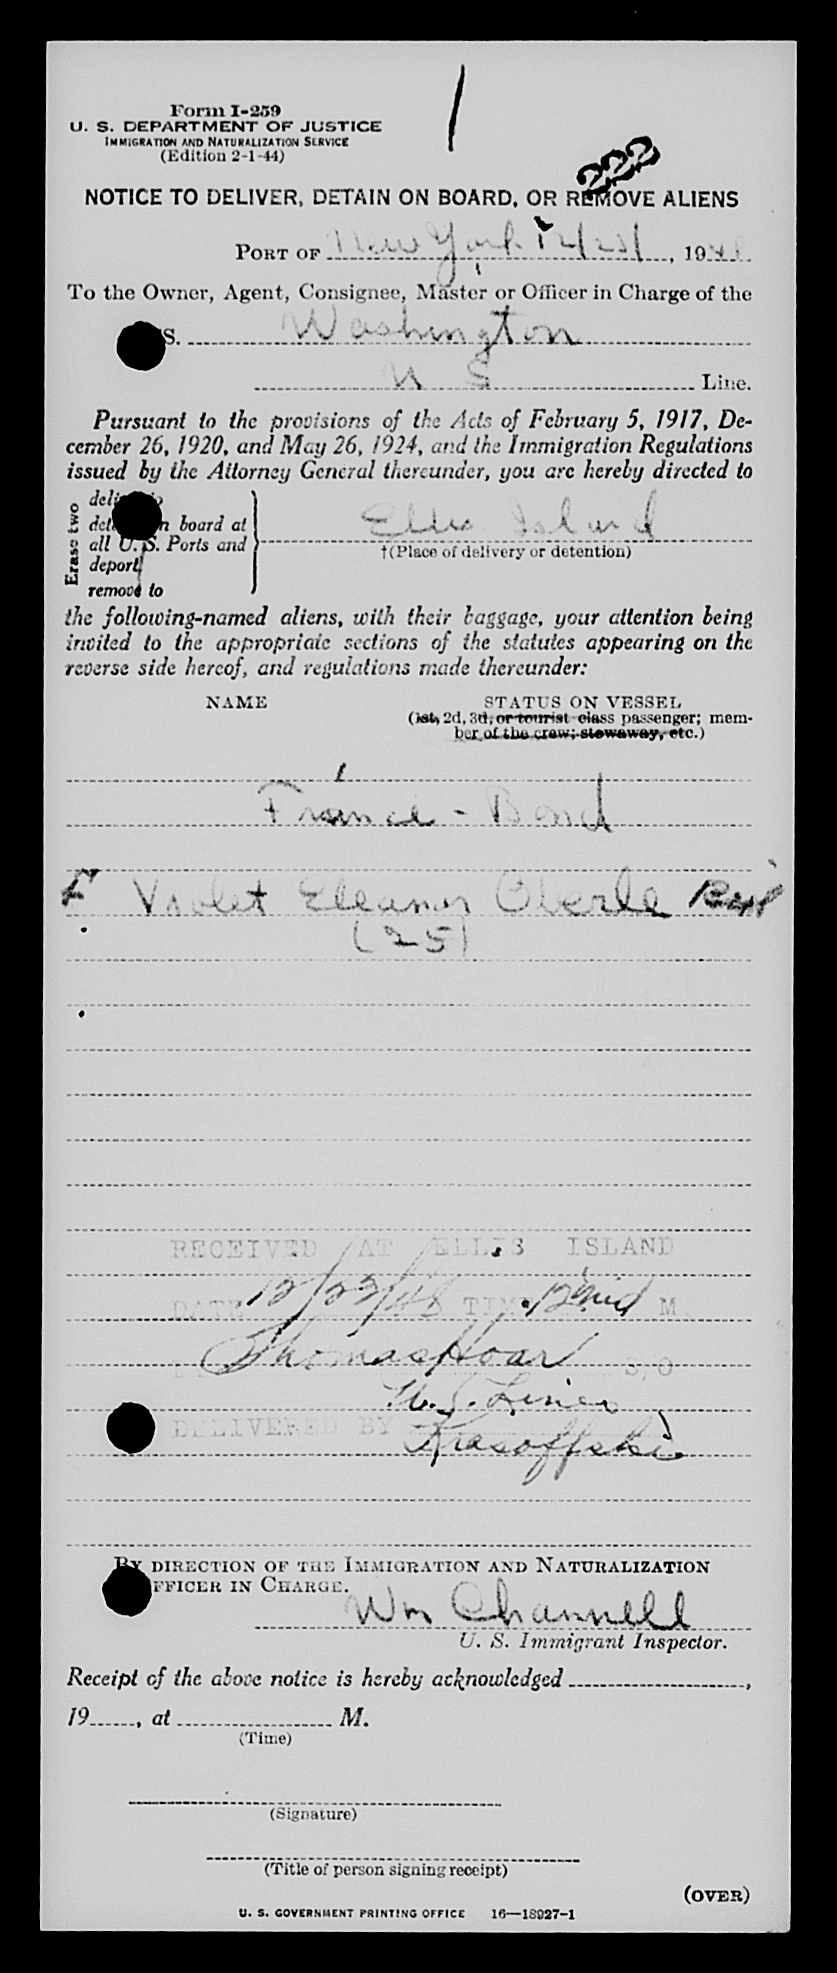 Form I-259
U. S. DEPARTMENT OF JUSTICE
IMMIGRATION AND NATURALIZATION SERVICE
(Edition 2-1-44)
222
NOTICE TO DELIVER, DETAIN ON BOARD, OR REMOVE ALIENS
PORT OF New York 12/21/, 1948.
To the Owner, Agent, Consignee, Master or Officer in Charge of the
S. Washington
U S Line.
Pursuant to the provisions of the Acts of February 5, 1917, De-
cember 26, 1920, and May 26, 1924, and the Immigration Regulations
issued by the Attorney General thereunder, you are hereby directed to
Erase two
board at
all U. S. Ports and
deport
remove to
Ellis Island
†(Place of delivery or detention)
the following-named aliens, with their baggage, your attention being
invited to the appropriate sections of the statutes appearing on the
reverse side hereof, and regulations made thereunder:
NAME STATUS ON VESSEL
(1st, 2d, 3d, or tourist class passenger; mem-
ber of the crew; stowaway, etc.)
France - Bond
F Violet Eleanor Oberle
(25)
RECEIVED AT ELLIS ISLAND
DATE 12/22/48 TIME 12 mid M.
Thomas Hoar S/O
U. S. Lines
DELIVERED BY Krasoffski
BY DIRECTION OF THE IMMIGRATION AND NATURALIZATION
OFFICER IN CHARGE.
Wm Channell
U. S. Immigrant Inspector.
Receipt of the above notice is hereby acknowledged ,
19 , at M.
(Time)
(Signature)
(Title of person signing receipt)
(OVER)
U. S. GOVERNMENT PRINTING OFFICE 16—18927-1